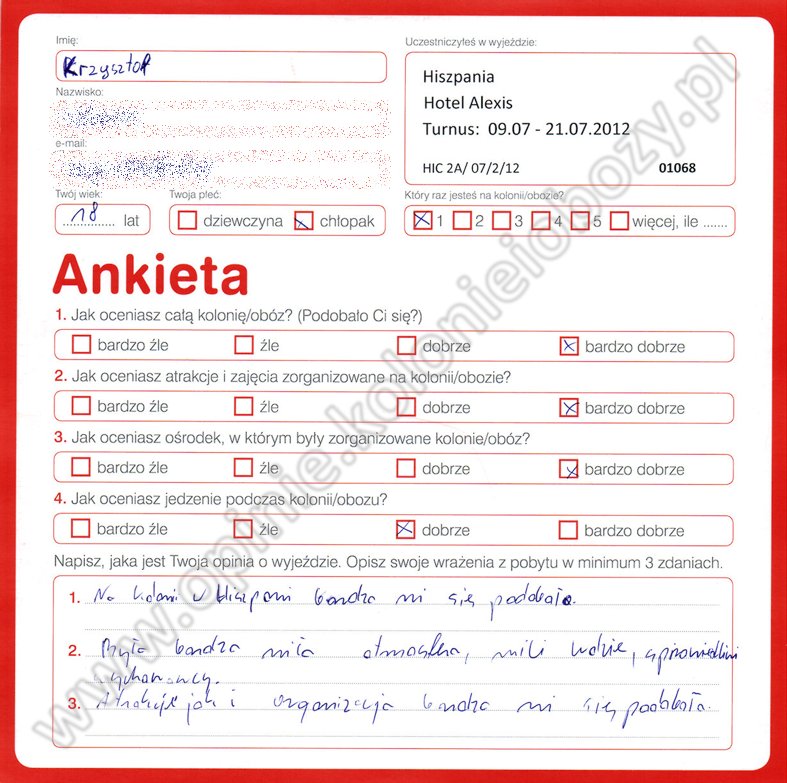 Imię:
Krzysztof
Nazwisko:
e-mail:
Twój wiek:
18 lat
Twoja płeć:
dziewczyna chłopak
Uczestniczyłeś w wyjeździe:
Hiszpania
Hotel Alexis
Turnus: 09.07 - 21.07.2012
HIC 2A/ 07/2/12 01068
Który raz jesteś na kolonii/obozie?
1 2 3 4 5 więcej, ile .......
Ankieta
1. Jak oceniasz całą kolonię/obóz? (Podobało Ci się?)
bardzo źle źle dobrze bardzo dobrze
2. Jak oceniasz atrakcje i zajęcia zorganizowane na kolonii/obozie?
bardzo źle źle dobrze bardzo dobrze
3. Jak oceniasz ośrodek, w którym były zorganizowane kolonie/obóz?
bardzo źle źle dobrze bardzo dobrze
4. Jak oceniasz jedzenie podczas kolonii/obozu?
bardzo źle źle dobrze bardzo dobrze
Napisz, jaka jest Twoja opinia o wyjeździe. Opisz swoje wrażenia z pobytu w minimum 3 zdaniach.
1. Na kolonii w Hiszpani bardzo mi się podobało.
2. Była bardzo miła atmosfera, mili ludzie, sprawiedliwi
wychowawcy.
3. Atrakcje jak i organizacja bardzo mi się podobała.
www.opinie.kolonieiobozy.pl